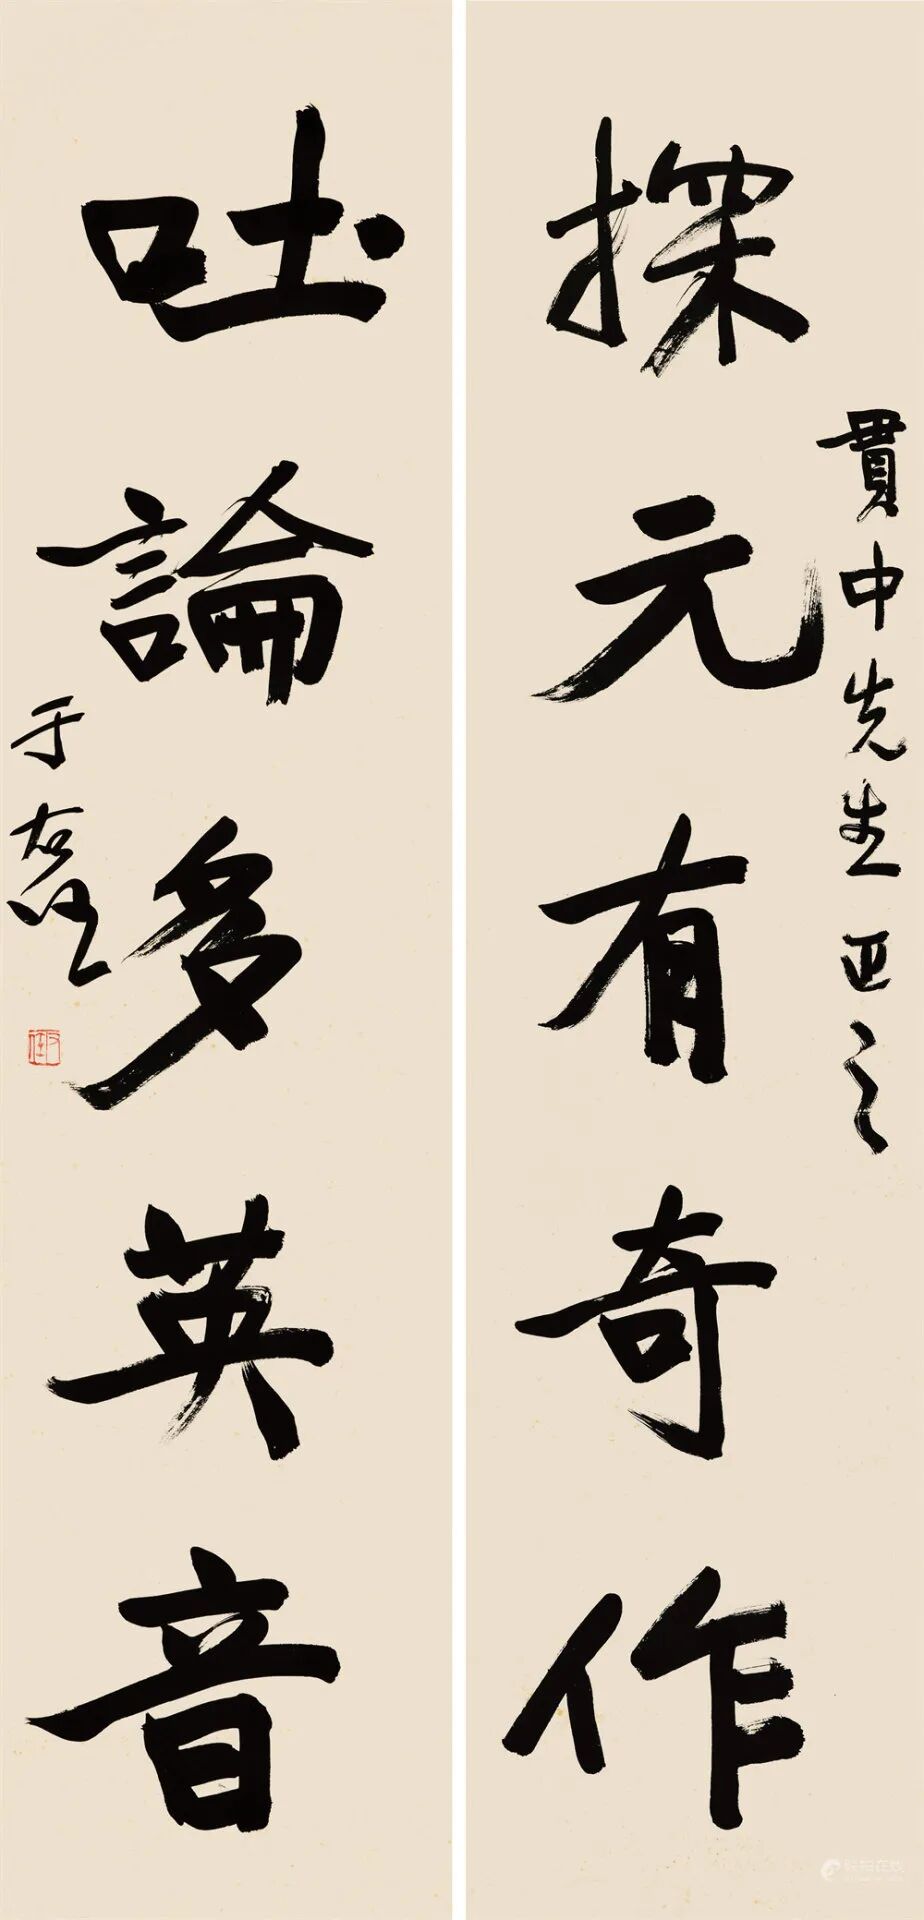 貫中先生正之
探元有奇作
吐論多英音
于右任
右任